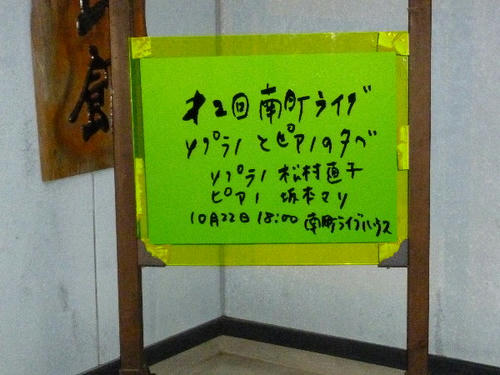 才2回南町ライブ
ソプラノとピアノの夕べ
ソプラノ 松村直子
ピアノ 坂本マリ
10月22日 18:00 南町ライブハウス